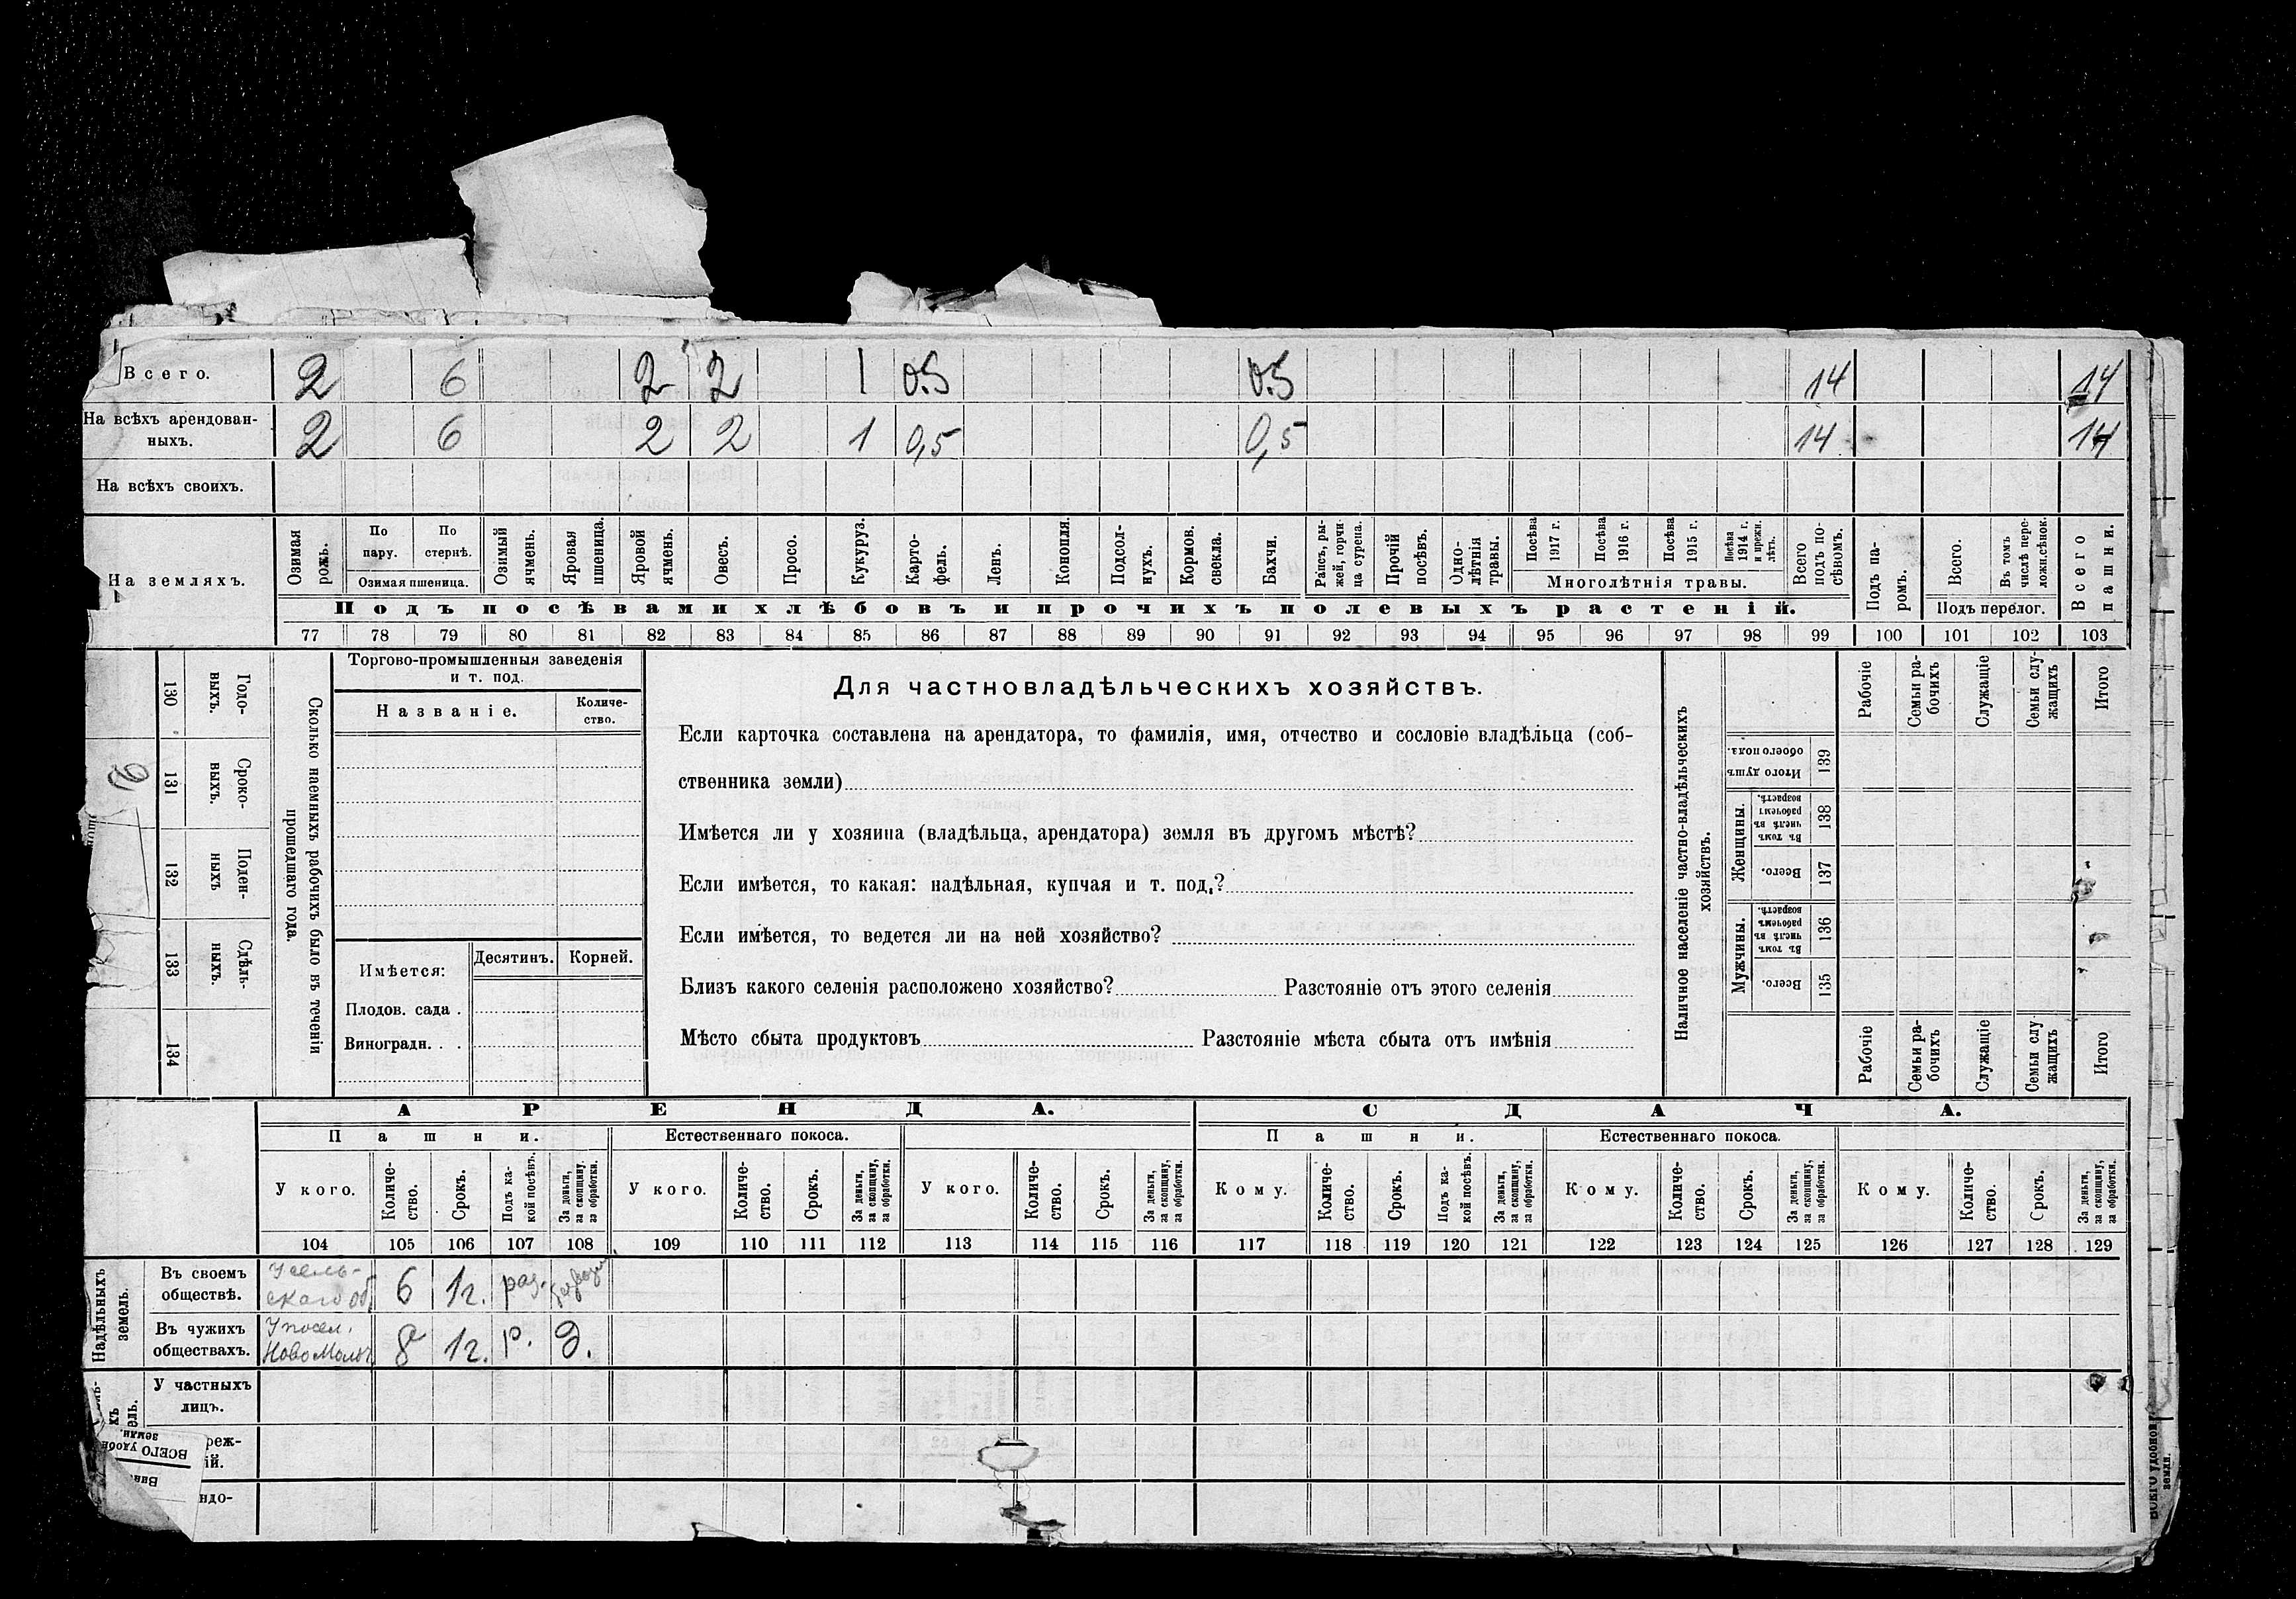 Всего. 2 6 2 2 1 0.5 0.5 14 14
На всѣхъ арендован-
ныхъ. 2 6 2 2 1 0,5 0,5 14 14
На всѣхъ своихъ.
На земляхъ.
Озимая рожь.
По пару.
По стернѣ.
Озимая пшеница.
Озимый ячмень.
Яровая пшеница.
Яровой ячмень.
Овесъ.
Просо.
Кукуруз.
Карто-
фель.
Ленъ.
Конопля.
Подсол-
нухъ.
Кормов. свекла.
Бахчи.
Рапсъ, ры-
жей, горчи-
ца сурепа.
Прочій посѣвъ.
Одно-
лѣтнія травы.
Посѣва 1917 г.
Посѣва 1916 г.
Посѣва 1915 г.
Посѣва 1914 г. и прежн. лѣтъ.
Многолѣтнія травы.
Всего подъ по-
сѣвомъ.
Подъ па-
ромъ.
Всего.
Въ томъ числѣ пере-
ложн.сѣнок.
Подъ перелог.
Всего пашни.
Подъ посѣвами хлѣбовъ и прочихъ полевыхъ растеній.
77 78 79 80 81 82 83 84 85 86 87 88 89 90 91 92 93 94 95 96 97 98 99 100 101 102 103
Годо-
выхъ.
130
Сроко-
выхъ.
131
Поден-
ныхъ
132
Сдѣль-
ныхъ.
133
134
Сколько наемныхъ рабочихъ было въ теченіи
прошедшаго года.
Торгово-промышленныя заведенія
и т. под.
Названіе.
Количе-
ство.
Имѣется:
Десятинъ.
Корней.
Плодов. сада .
Виноградн. . .
Для частновладѣльческихъ хозяйствъ.
Если карточка составлена на арендатора, то фамилія, имя, отчество и сословіе владѣльца (соб-
ственника земли)
Имѣется ли у хозяина (владѣльца, арендатора) земля въ другомъ мѣстѣ?
Если имѣется, то какая: надѣльная, купчая и т. под.?
Если имѣется, то ведется ли на ней хозяйство?
Близъ какого селенія расположено хозяйство? Разстояніе отъ этого селенія
Мѣсто сбыта продуктовъ Разстояніе мѣста сбыта отъ имѣнія
Наличное населеніе частно-владѣльческихъ
хозяйствъ.
Итого душъ обоего пола.
139
Женщины.
Въ томъ числѣ въ рабочемъ возрастѣ.
138
Всего.
137
Мужчины.
Въ томъ числѣ въ рабочемъ возрастѣ.
136
Всего.
135
Рабочіе
Семьи ра-
бочихъ
Служащіе
Семьи слу-
жащихъ
Итого
Рабочіе
Семьи ра-
бочихъ
Служащіе
Семьи слу
жащихъ
Итого
АРЕНДА. СДАЧА.
Пашни. Естественнаго покоса. Пашни. Естественнаго покоса.
У кого.
Количе-
ство.
Срокъ.
Подъ ка-
кой посѣвъ.
За деньги,
за скопщину,
за обработки.
У кого.
Количе-
ство.
Срокъ.
За деньги,
за скопщину,
за обработки.
У кого.
Количе-
ство.
Срокъ.
За деньги,
за скопщину,
за обработки.
Кому.
Количе-
ство.
Срокъ.
Подъ ка-
кой посѣвъ.
За деньги,
за скопщину,
за обработки.
Кому.
Количе-
ство.
Срокъ.
За деньги,
за скопщину,
за обработки.
Кому.
Количе-
ство.
Срокъ.
За деньги,
за скопщину,
за обработки.
104 105 106 107 108 109 110 111 112 113 114 115 116 117 118 119 120 121 122 123 124 125 126 127 128 129
Надѣльныхъ
земель.
Въ своемъ
обществѣ.
У сель-
скаго об. 6 1г. раз.
Въ чужихъ
обществахъ.
У посел.
Ново 8 1г. р. д.
У частныхъ
лицъ.
реж-
ій.
ндо-
ВСЕГО удобн
земли.
ВСЕГО удобной
земли.